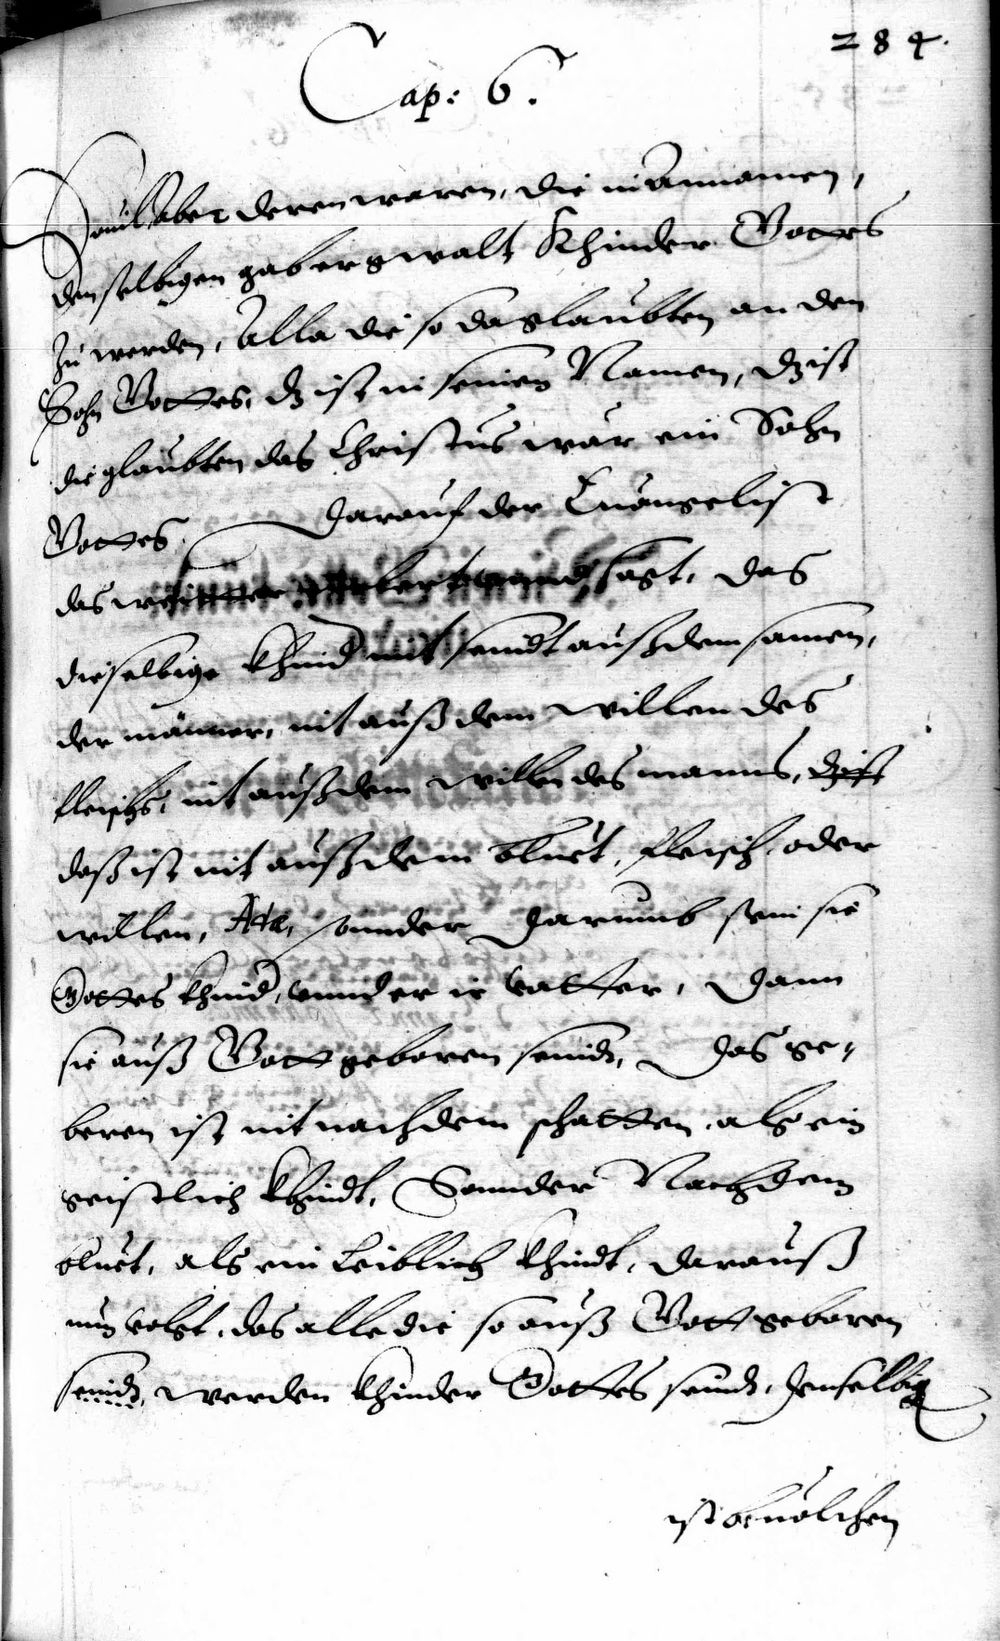 284.
Cap: 6.
Souil aber deren waren, die in Annamen,
denselbigen gab er gwalt Khinder Gottes
zu werden, Alla die so da glaubten an den
Sohn Gottes, dz ist in seinen Namen, dz ist
die glaubten das Christus war ein Sohn
Gottes. Darauf der Euangelist
das sagt, das
dieselbige khind nit seindt auß dem samen,
der männer, nit auß dem willen des
fleischs, nit auß dem willen des manns, dz ist
daß ist nit auß dem bluet, fleisch, oder
willen, sonnder darumb sein sie
Gottes khind, vnnd er ir vatter, dann
sie auß Gott geboren seindt, das ge-
beren ist nit nach dem schatten, als ein
geistlich khindt, Sonnder Nach dem
bluet, als ein leiblich khindt, darauß
nun volgt, das alle die so auß Gott geboren
seindt, werden khinder Gottes seindt, denselbig
ist beuolchen